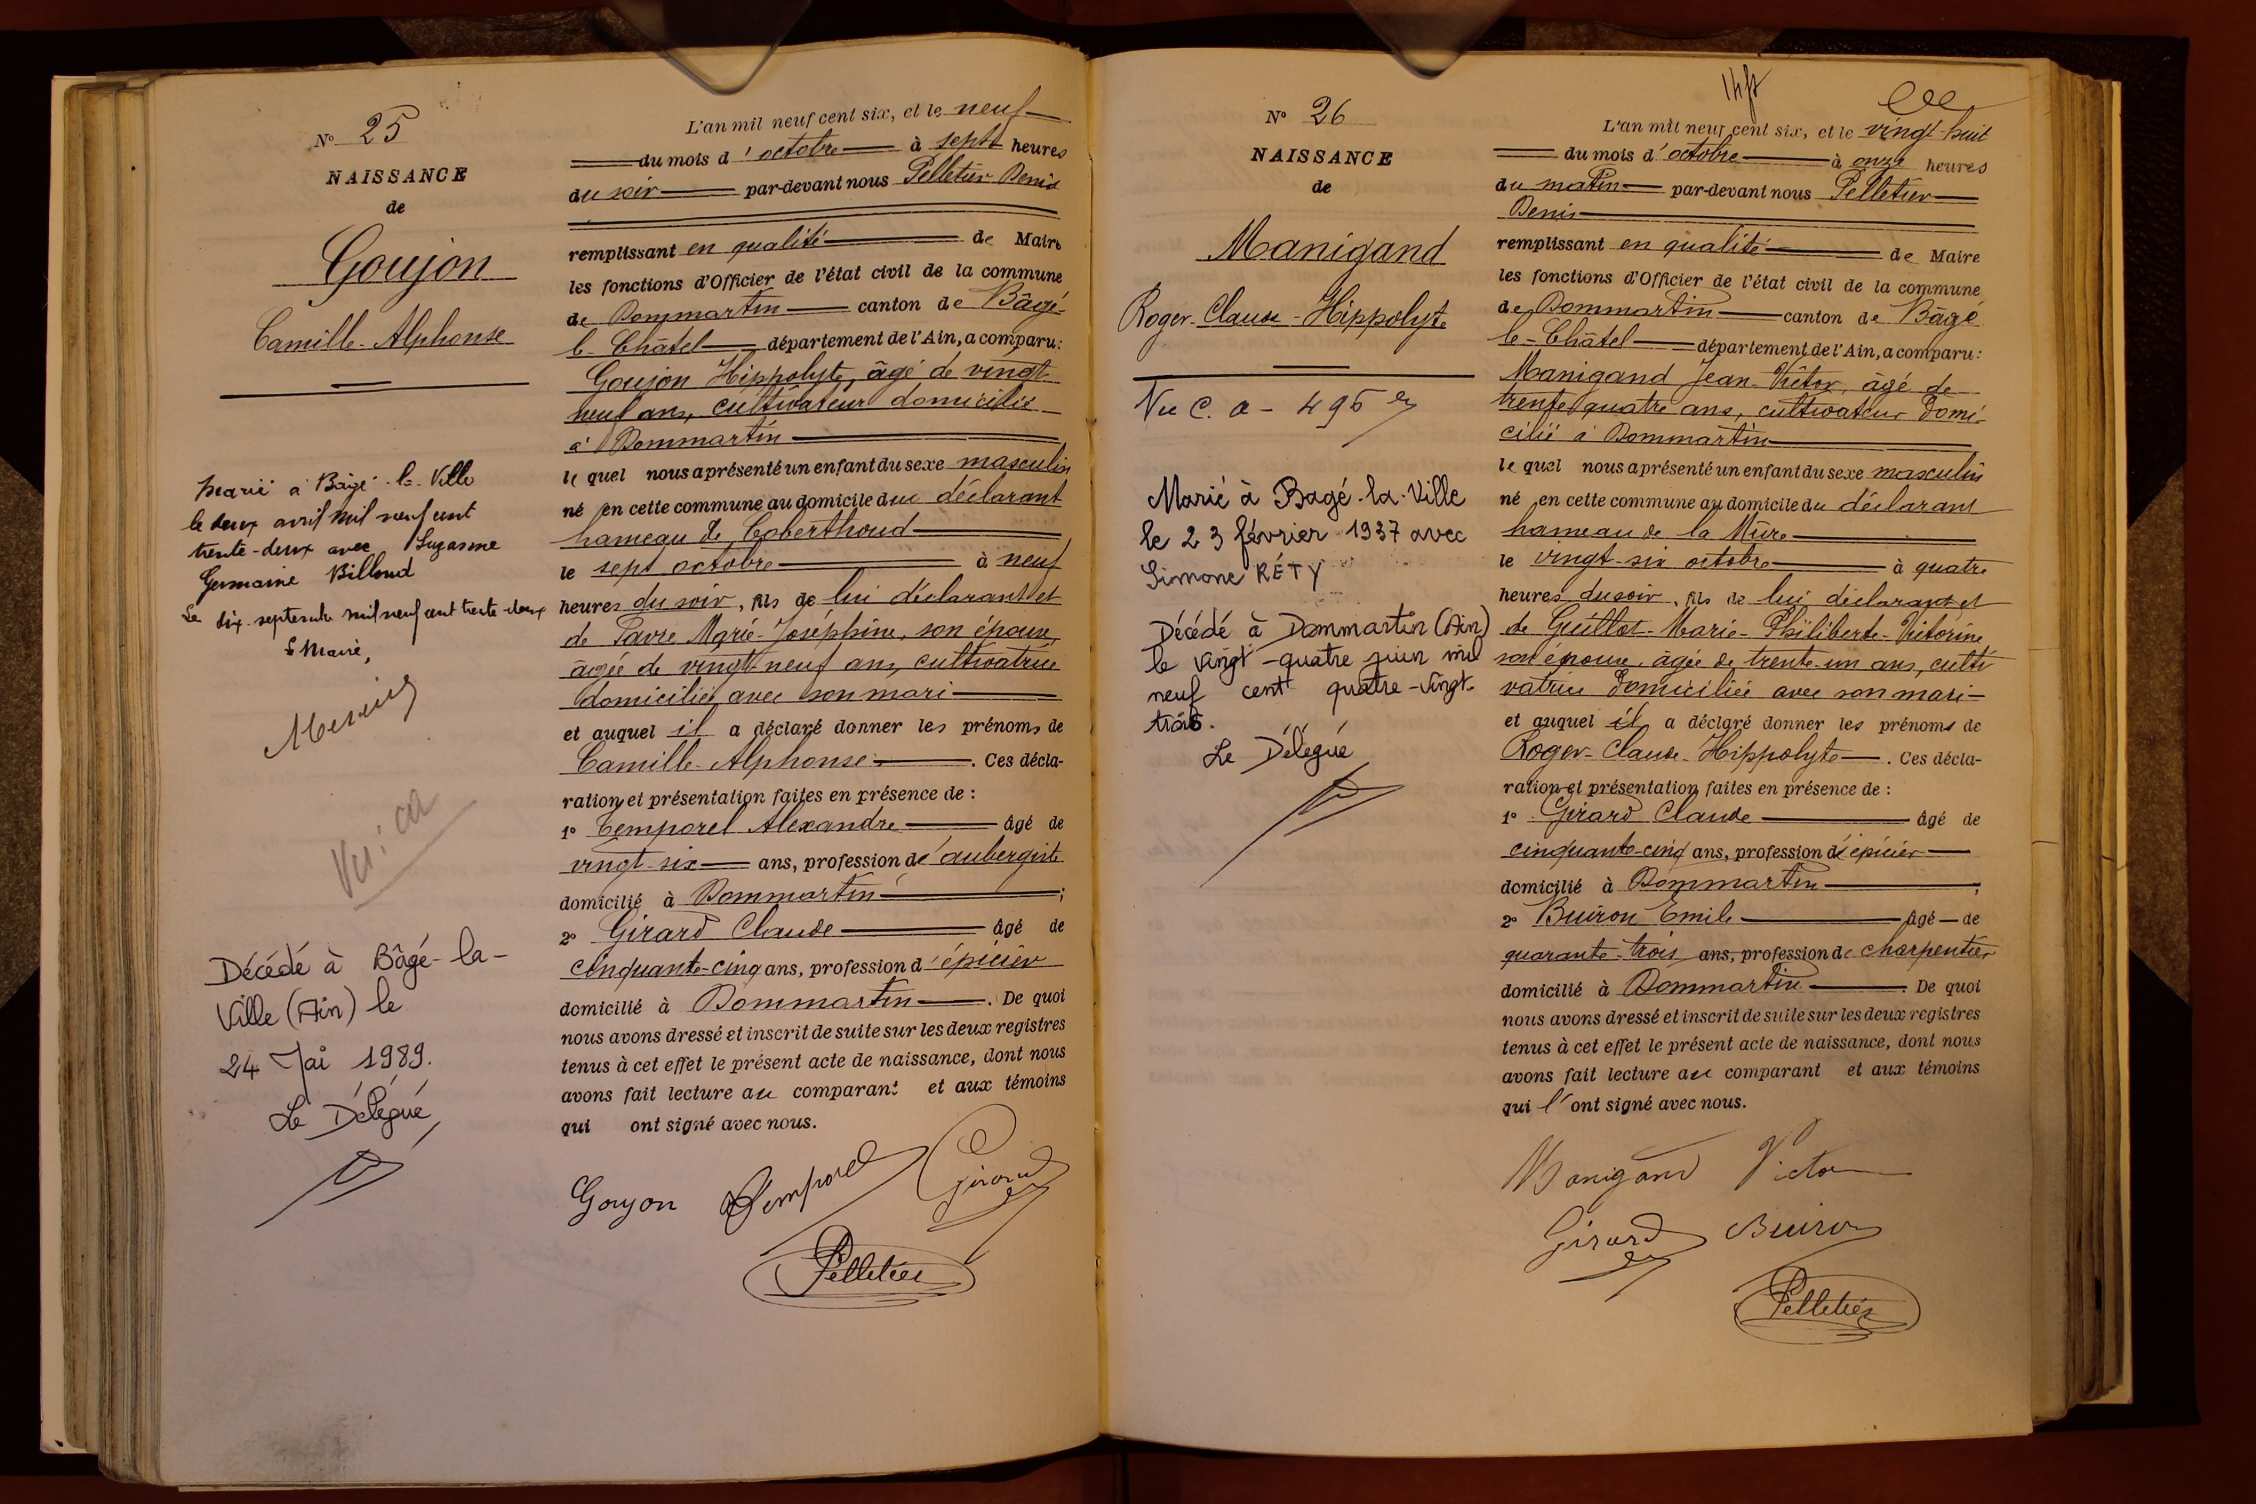 N° 25
NAISSANCE
de
Goujon
Camille-Alphonse
Marié à Bâgé-la-Ville
le deux avril mil neuf cent
trente-deux avec Suzanne
Germaine Billoud
Le dix septembre mil neuf cent trente-deux
Le Maire,
Vu: ca
Décédé à Bâgé-la-
Ville (Ain) le
24 Mai 1989.
Le Délégué
L'an mil neuf cent six, et le neuf
du mois d'octobre à sept heures
du soir par-devant nous Pelletier Denis
remplissant en qualité de Maire
les fonctions d'Officier de l'état civil de la commune
de Dommartin canton de Bâgé-
le-Châtel département de l'Ain, a comparu:
Goujon Hippolyte, âgé de vingt-
neuf ans, cultivateur domicilié
à Dommartin
lequel nous a présenté un enfant du sexe masculin
né en cette commune au domicile du déclarant
hameau de Coberthoud
le sept octobre à neuf
heures du soir, fils de lui déclarant et
de Favre Marie-Joséphine, son épouse,
âgée de vingt neuf ans, cultivatrice
domiciliée avec son mari
et auquel il a déclaré donner les prénoms de
Camille-Alphonse. Ces décla-
ration et présentation faites en présence de :
1° Temporel Alexandre âgé de
vingt-six ans, profession d'aubergiste
domicilié à Dommartin ;
2° Girard Claude âgé de
cinquante-cinq ans, profession d'épicier
domicilié à Dommartin. De quoi
nous avons dressé et inscrit de suite sur les deux registres
tenus à cet effet le présent acte de naissance, dont nous
avons fait lecture au comparant et aux témoins
qui ont signé avec nous.
Goujon Temporel Girard
Pelletier
N° 26
NAISSANCE
de
Manigand
Roger-Claude-Hippolyte
Vu C. a - 496
Marié à Bagé-la-Ville
le 23 février 1937 avec
Simone RÉTY
Décédé à Dommartin (Ain)
le vingt-quatre juin mil
neuf cent quatre-vingt-
trois.
Le Délégué
L'an mil neuf cent six, et le vingt-huit
du mois d'octobre à onze heures
du matin par-devant nous Pelletier
Denis
remplissant en qualité de Maire
les fonctions d'Officier de l'état civil de la commune
de Dommartin canton de Bâgé
le-Châtel département de l'Ain, a comparu:
Manigand Jean-Victor, âgé de
trente quatre ans, cultivateur domi-
cilié à Dommartin
lequel nous a présenté un enfant du sexe masculin
né en cette commune au domicile du déclarant
hameau de la Mûre
le vingt-six octobre à quatre
heures du soir, fils de lui déclarant et
de Guillot-Marie-Philiberte-Victorine
son épouse, âgée de trente-un ans, culti
vatrice domiciliée avec son mari
et auquel il a déclaré donner les prénoms de
Roger-Claude-Hippolyte. Ces décla-
ration et présentation faites en présence de :
1° Girard Claude âgé de
cinquante-cinq ans, profession d'épicier
domicilié à Dommartin ;
2° Buiron Emile âgé de
quarante-trois ans, profession de charpentier
domicilié à Dommartin. De quoi
nous avons dressé et inscrit de suite sur les deux registres
tenus à cet effet le présent acte de naissance, dont nous
avons fait lecture au comparant et aux témoins
qui l'ont signé avec nous.
Manigand Victor
Girard Buiron
Pelletier